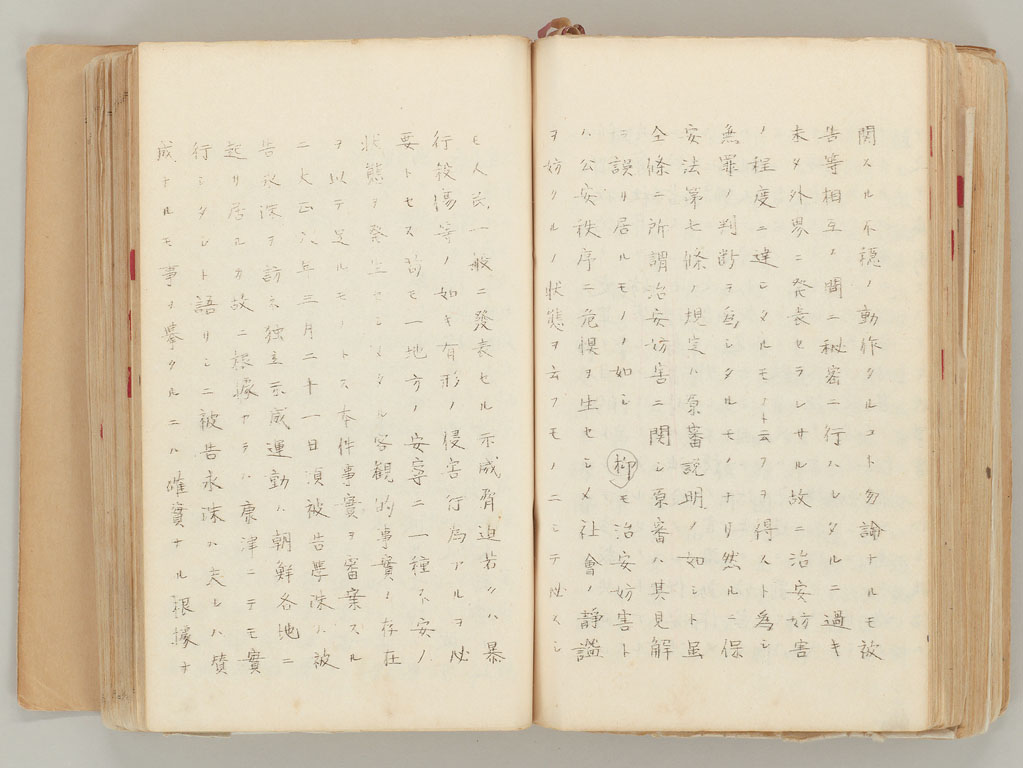 関スル不穏ノ動作タルコト勿論トルモ被
告等相互ノ間ニ秘密ニ行ハレタルニ過キ
未タ外界ニ発表セラレサル故ニ治安妨害
ノ程度ニ達シタルモノト云フヲ得スト為シ
無罪ノ判断テ為シタルモノナリ然ルニ保
安法第七條ノ規定ハ原審説明ノ如シト虽
仝條ニ所謂治安妨害ニ関シ原審ハ其見解
ヲ誤リ居ルモノノ如シ抑モ治安妨害ト
ハ公安秩序ニ危惧ヲ生セシメ社会ノ静謐
ヲ妨クルノ状態ヲ云フモノニシテ必スシ
モ人民一般ニ發表セル示威脅迫若クハ暴
行殺傷等ノ如キ有形ノ侵害行為アルヲ必
要トセス苟モ一地方ノ安寧ニ一種不安ノ
状態ヲ発生セシメタル客観的事實ノ存在
ヲ以テ足ルモノトス本件事實ヲ審案スル
ニ大正八年三月二十一日頃被告學洙ハ被
告永洙ヲ訪ネ独立示威運動ハ朝鮮各地ニ
起リ居ルカ故ニ根據アラハ康津ニテモ實
行シタシト語リシニ被告永洙ハ夫レハ賛
成ナルモ事ヲ擧クルニハ確實ナル根據ナ